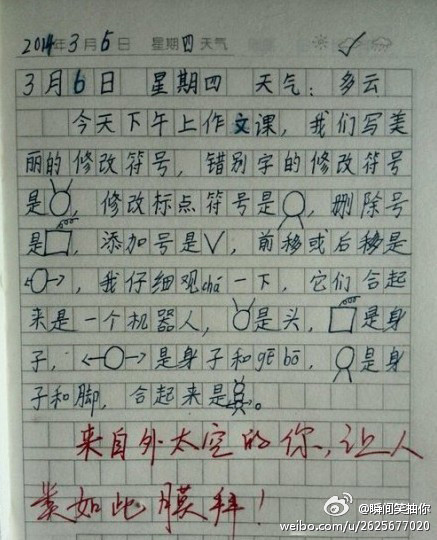 2014年3月6日 星期四天气
3月6日 星期四 天气：多云
今天下午上作文课，我们写美
丽的修改符号，错别字的修改符号
是，修改标点符号是，删除号
是，添加号是∨，前移或后移是
，我仔细观chá一下，它们合起
来是一个机器人，是头，是身
子，是身子和gē bō，是身
子和脚，合起来是。
来自外太空的你，让人
类如此膜拜！
@瞬间笑抽你
weibo.com/u/2625677020